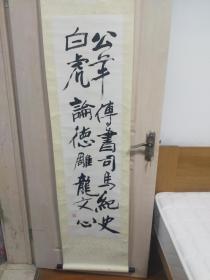 公羊傳書司馬紀史
白虎論德雕龍文心